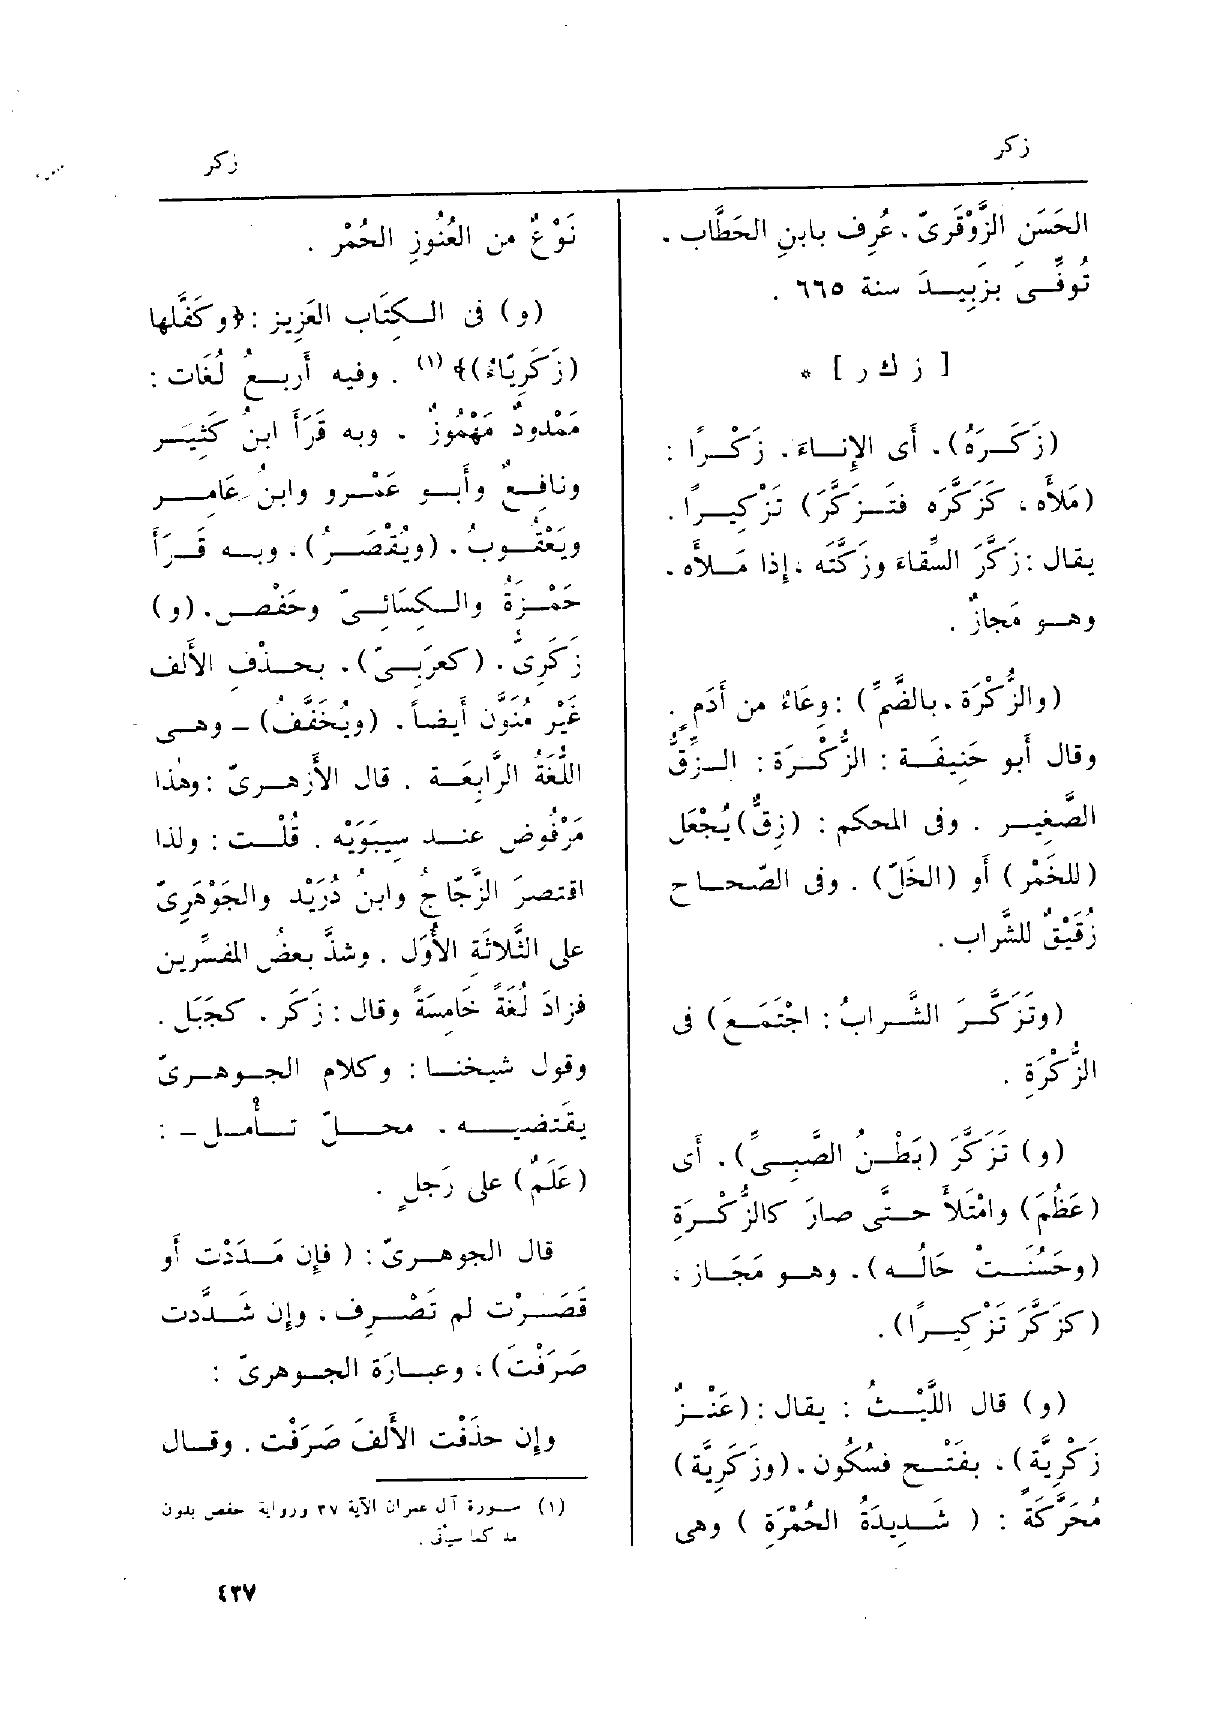 زكر
زكر
الحَسَنِ الزَّوْقَرِىّ، عُرِف بابنِ الحَطَّاب،
تُوفِّىَ بزَبِيــدَ سنة ٦٦٥ .
[ ز ك ر ] *
(زَكَــرَهُ)، أى الإِنــاءَ، زَكْــرًا :
(مَلأَه ، كَزَكَّرَه فتَــزَكَّرَ) تَزْكِيــرًا .
يقال : زَكَّرَ السِّقاءَ وزَكَّتَه ، إذا مَــلأَه ،
وهــو مَجازٌ .
(والزُّكْرَة ، بالضَّمِّ) : وِعَاءٌ من أَدَمٍ ،
وقال أَبو حَنِيفَــة : الزُّكْــرَة : الــزِّقُّ
الصَّغِيــر . وفى المحكم : (زِقٌّ) يُجْعَل
(للخَمْر) أَو (الخَلّ) . وفى الصّحــاح
زُقَيْقٌ للشَّراب .
(وتَزَكَّــرَ الشَّــرابُ : اجْتَمَــعَ) فى
الزُّكْرَةِ .
(و) تَزَكَّرَ (بَطْــنُ الصَّبِــىِّ) ، أى
(عَظُمَ) وامْتَلأَ حــتَّى صارَ كالزُّكْــرَةِ
(وحَسُنَــتْ حَالُــه) ، وهــو مَجَــاز ،
(كزَكَّرَ تَزْكِيــرًا) .
(و) قال اللَّيْــثُ : يقال : (عَنْــزٌ
زَكْرِيَّة) ، بفَتْــح فسُكُون ، (وزَكَرِيَّة)
مُحَرَّكَةً : ( شَــدِيدَةُ الحُمْرَةِ ) وهى
نَوْعٌ من العُنُوزِ الحُمْر .
(و) فى الــكِتَاب العَزِيز : ﴿وكَفَّلها
(زَكَرِيّاءُ)﴾ (١) . وفيه أَربــعُ لُغَات :
مَمْدودٌ مَهْمُوزٌ ، وبه قَرَأَ ابنُ كَثِيَــر
ونافِعٌ وأَبــو عَمْــرو وابنُ عَامِــر
ويَعْقُــوبُ ، (ويُقْصَــرُ) ، وبــه قَــرَأَ
حَمْــزَةُ والــكِسَائِــىّ وحَفْــص، (و)
زَكَرِىٌّ ، (كعرَبــىّ) ، بحــذْفِ الأَلف
غَيْر مُنَوَّن أَيضاً ، (ويُخَفَّفُ) – وهــى
اللُّغَةُ الرَّابِعَــة . قال الأَزهــرىّ : وهٰذا
مَرْفُوض عنــد سِيبَوَيْه . قُلْــت : ولذا
اقتصرَ الزَّجّاجُ وابنُ دُرَيْد والجَوْهَرِىّ
على الثَّلاثَةِ الأُوَل . وشذَّ بعضُ المفسِّرين
فزادَ لُغَةً خَامِسَةً وقال : زَكَر ، كجَبَل ،
وقول شيخنــا : وكلام الجــوهــرىّ
يقتضيــــه ، محــلّ تــأْمــل – :
(عَلَمٌ) على رَجلٍ .
قال الجوهــرىّ : ( فإن مَــدَدْت أَو
قَصَــرْت لم تَصْــرِف ، وإن شَــدَّدت
صَرَفْتَ) ، وعبــارَة الجــوهرىّ :
وإن حذَفْت الأَلفَ صَرَفْت ، وقــال
(١) ســورة آل عمران الآية ٣٧ ورواية حفص بدون
مد كما سيأتى .
٤٣٧